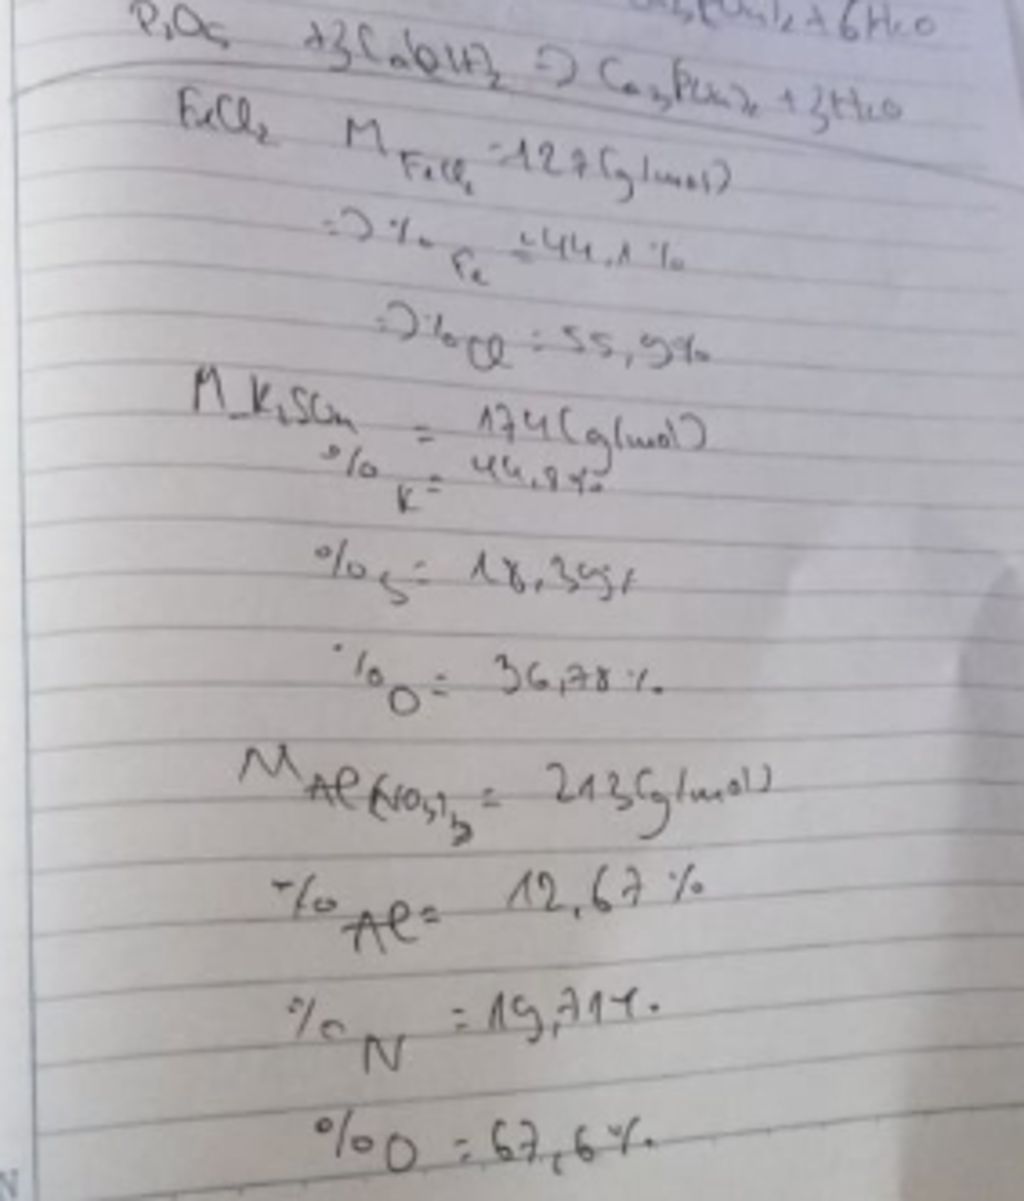 )₂ + 6H₂O
P₂O₅ + 3Ca(OH)₂ => Ca₃(PO₄)₂ + 3H₂O
FeCl₂ M FeCl₂ = 127 (g/mol)
=> % Fe = 44,1 %
=> % Cl = 55,9%
M_K₂SO₄ = 174 (g/mol)
% K = 44,8%
% S = 18,39%
% O = 36,78 %
M Al(NO₃)₃ = 213 (g/mol)
% Al = 12,67 %
% N = 19,71%
% O = 67,6%